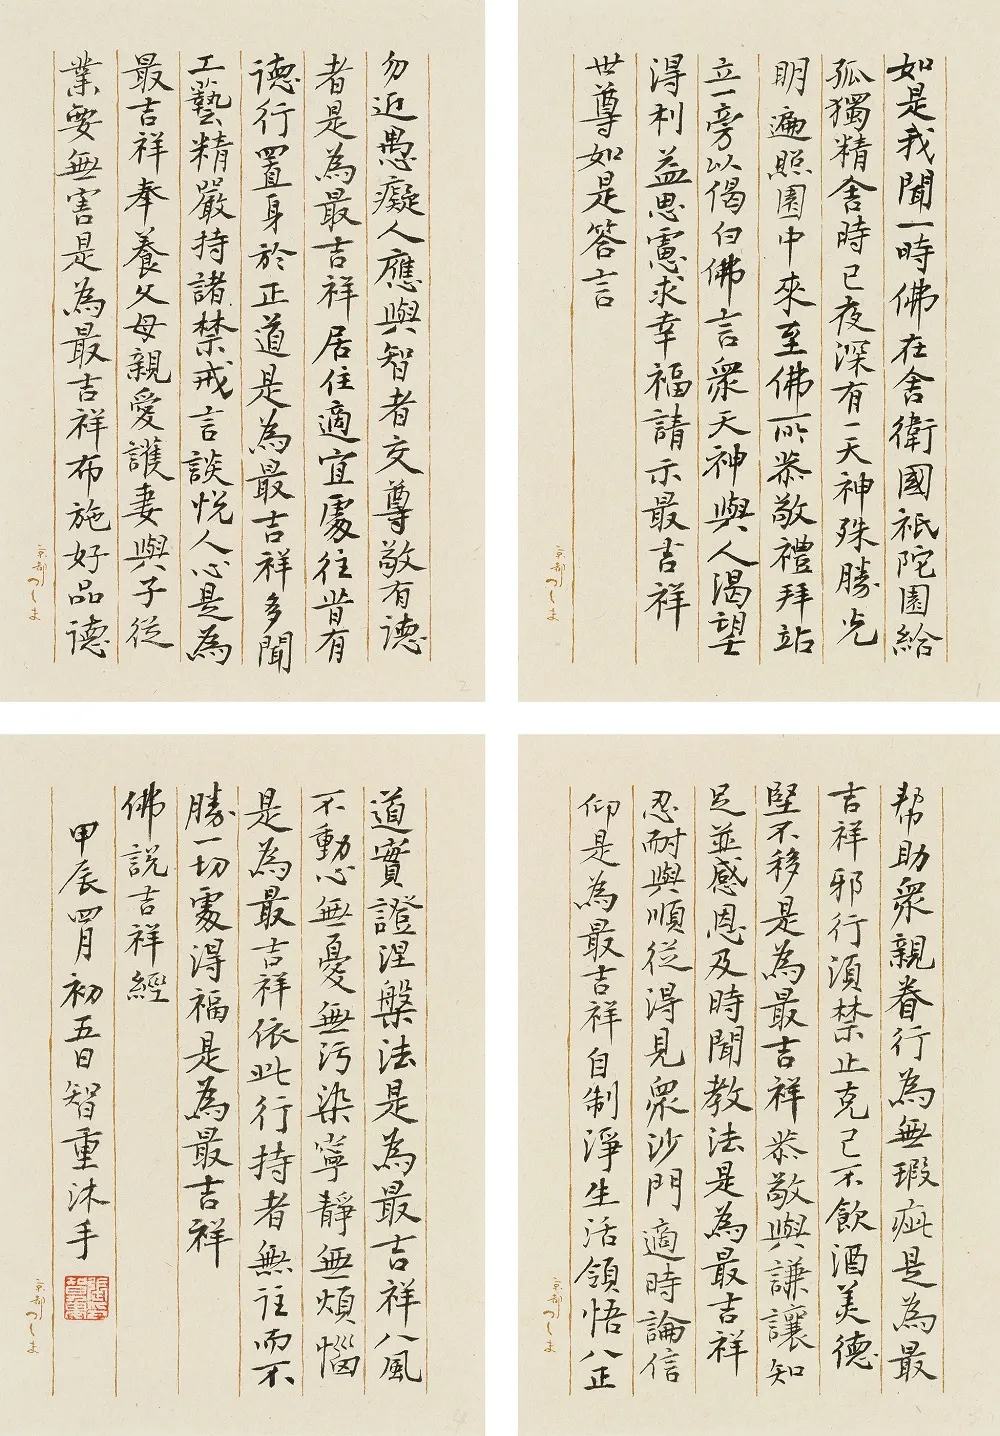 如是我聞一時佛在舍衛國祇陀園給
孤獨精舍時已夜深有一天神殊勝光
明遍照園中來至佛所恭敬禮拜站
立一旁以偈白佛言眾天神與人渴望
得利益思慮求幸福請示最吉祥
世尊如是答言
京都つしま
1
勿近愚癡人應與智者交尊敬有德
者是為最吉祥居住適宜處往昔有
德行置身於正道是為最吉祥多聞
工藝精嚴持諸禁戒言談悅人心是為
最吉祥奉養父母親愛護妻與子從
業要無害是為最吉祥布施好品德
京都つしま
2
帮助眾親眷行為無瑕疵是為最
吉祥邪行須禁止克己不飲酒美德
堅不移是為最吉祥恭敬與謙讓知
足並感恩及時聞教法是為最吉祥
忍耐與順從得見眾沙門適時論信
仰是為最吉祥自制淨生活領悟八正
京都つしま
3
道實證涅槃法是為最吉祥八風
不動心無憂無污染寧靜無煩惱
是為最吉祥依此行持者無往而不
勝一切處得福是為最吉祥
佛說吉祥經
甲辰四月初五日智重沐手
京都つしま
4